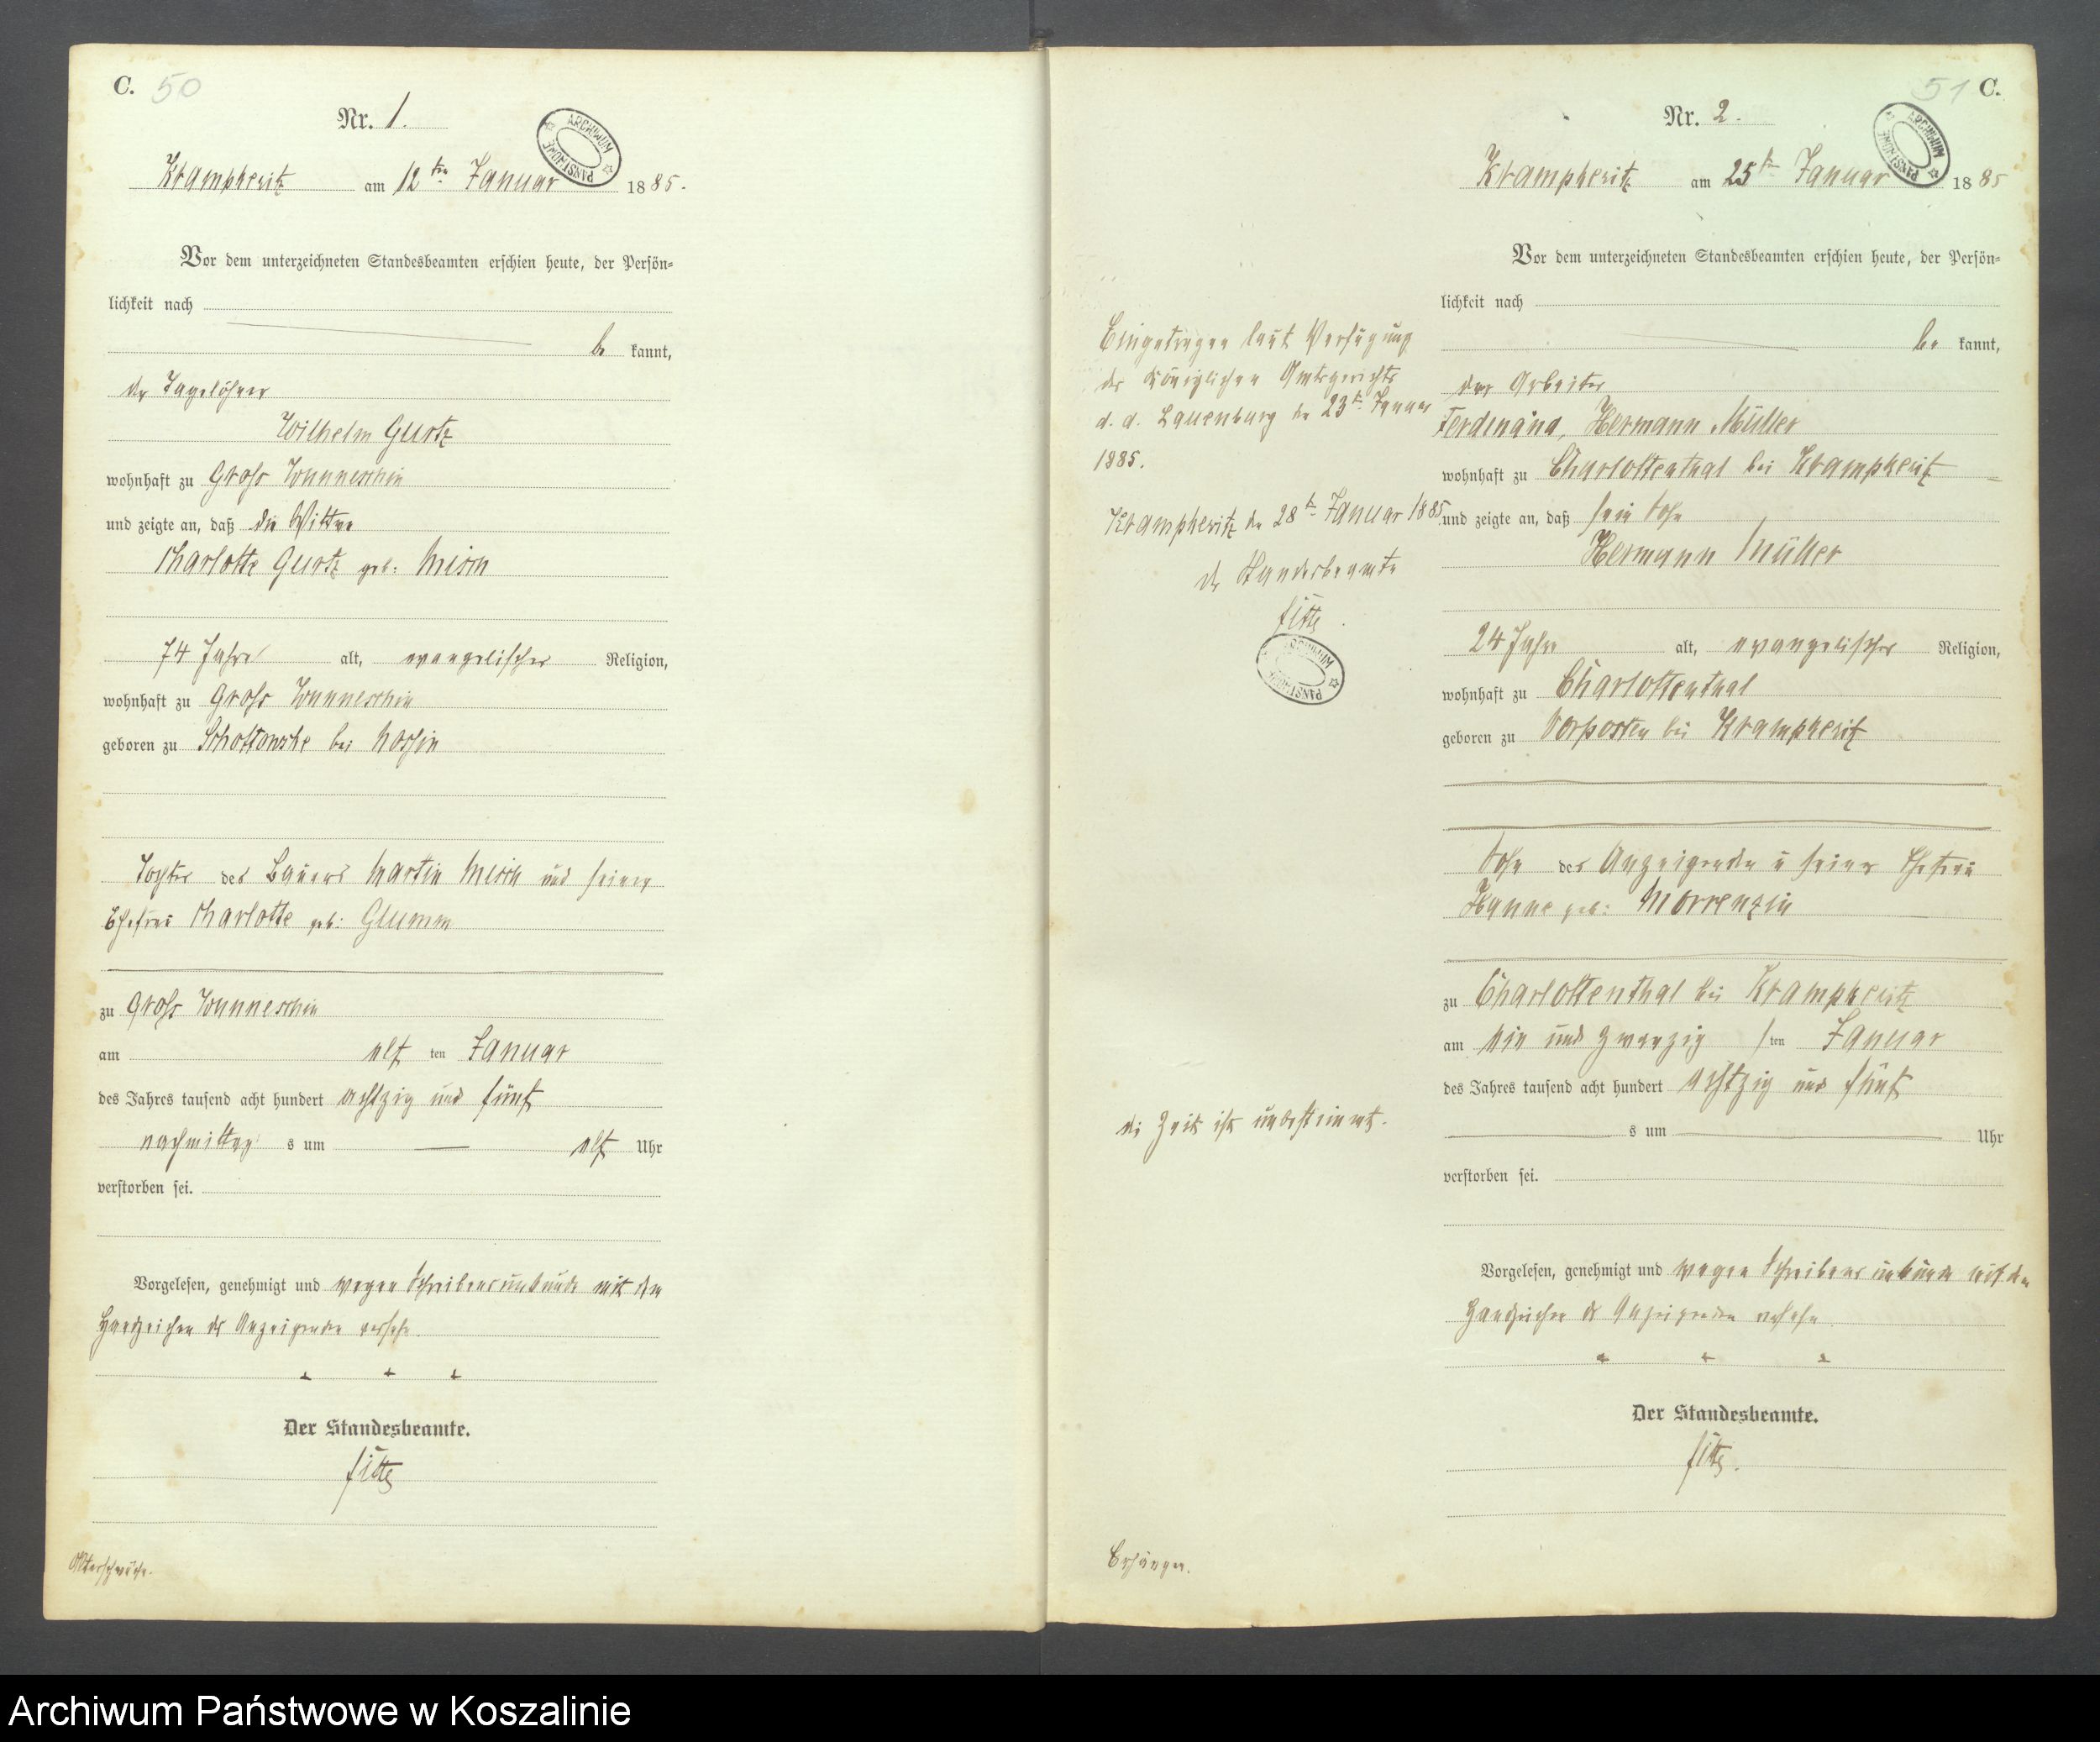 C. 50
Nr. 1.
ARCHIWUM PAŃSTWOWE
Krampkewitz am 12ten Januar 1885.
Vor dem unterzeichneten Standesbeamten erschien heute, der Persön-
lichkeit nach
be kannt,
der Tagelöhner
Wilhelm Gurtz
wohnhaft zu Groß Wunneschin
und zeigte an, daß die Wittwe
Charlotte Gurtz geb:
74 Jahre alt, evangelischer Religion,
wohnhaft zu Groß Wunneschin
geboren zu Schottowske bei
Tochter des Bauers Martin und seiner
Ehefrau Charlotte geb: Glumm
zu Groß Wunneschin
am elf ten Januar
des Jahres tausend acht hundert achtzig und fünf
nachmittag s um elf Uhr
verstorben sei.
Vorgelesen, genehmigt und wegen Schreibensunkunde mit dem
Handzeichen des Anzeigenden versehn.
+ + +
Der Standesbeamte.
Altersschwäche.
51 C.
Nr. 2.
ARCHIWUM PAŃSTWOWE
Krampkewitz am 25ten Januar 1885
Vor dem unterzeichneten Standesbeamten erschien heute, der Persön-
lichkeit nach
be kannt,
der Arbeiter
Ferdinand, Hermann Müller
wohnhaft zu Charlottenthal bei Krampkewitz
und zeigte an, daß sein Sohn
Hermann Müller
24 Jahre alt, evangelischer Religion,
wohnhaft zu Charlottenthal
geboren zu Vorposten bei Krampkewitz
Sohn des Anzeigenden u seiner Ehefrau
Hanne geb: Morrenzin
zu Charlottenthal bei Krampkewitz
am ein und zwanzig sten Januar
des Jahres tausend acht hundert achtzig und fünf
s um Uhr
verstorben sei.
Vorgelesen, genehmigt und wegen Schreibensunkunde mit dem
Handzeichen des Anzeigenden versehn
+ + +
Der Standesbeamte.
Eingetragen laut Verfügung
des Königlichen Amtsgerichts
d. d. Lauenburg den 23ten Januar
1885.
Krampkewitz den 28ten Januar 1885.
der Standesbeamte
ARCHIWUM PAŃSTWOWE
die Zeit ist unbestimmt.
Archiwum Państwowe w Koszalinie